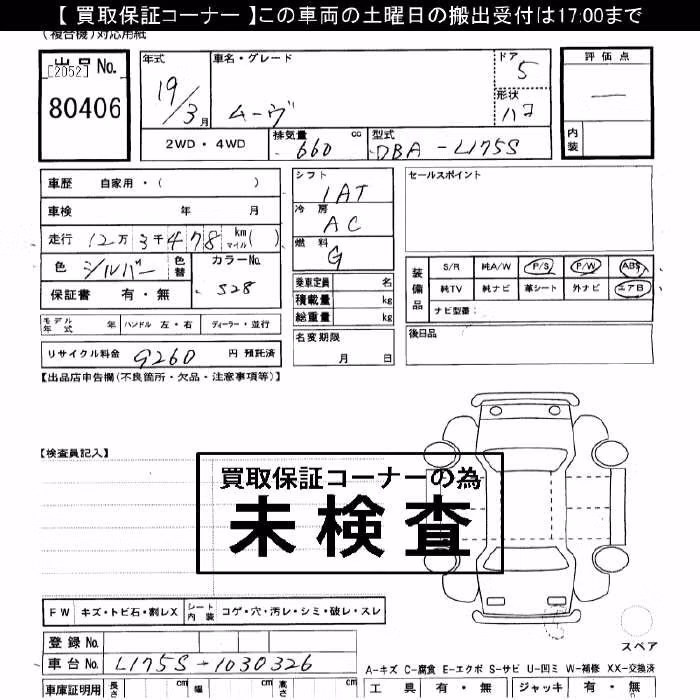 【 買取保証コーナー 】この車両の土曜日の搬出受付は17:00まで
(複合機)対応用紙
出品 No.
[2052]
80406
年式
19/3月
車名・グレード
ムーヴ
ドア
5
形状
ハコ
評価点
—
内装
2WD・4WD
排気量 660 cc
型式 DBA-L175S
車歴 自家用・( )
車検 年 月
走行 12万 3千478 km マイル ( )
色 シルバー 色替
カラーNo. S28
保証書 有・無
シフト
IAT
冷房
AC
燃料
G
乗車定員 名
積載量 kg
総重量 kg
名変期限
月 日
セールスポイント
装備品
S/R 純A/W P/S P/W ABS
純TV 純ナビ 革シート 外ナビ エアB
ナビ型番:
後日品
モデル年式 年 ハンドル 左・右 ディーラー・並行
リサイクル料金 9260 円 預託済
【出品店申告欄(不良箇所・欠品・注意事項等)】
【検査員記入】
買取保証コーナーの為
未検査
FW キズ・トビ石・割レX シート内装 コゲ・穴・汚レ・シミ・破レ・スレ
スペア
登録No.
車台No. L175S-1030326
A-キズ C-腐食 E-エクボ S-サビ U-凹ミ W-補修 XX-交換済
車庫証明用 長さ cm 幅 cm 高さ cm
工具 有・無 ジャッキ 有・無